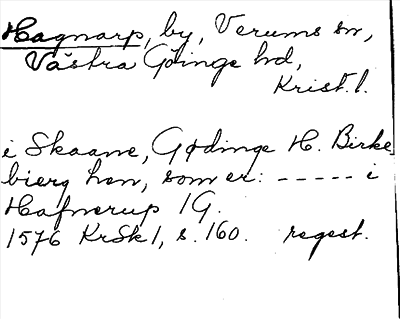 Hagnarp, by, Verums sn,
Västra Göinge hd,
Krist. l.
i Skaane, Gødinge H. Birke
bierg len, som er: ----- i
Hafnerup 1G.
1576 KrSk1, s. 160. regest.